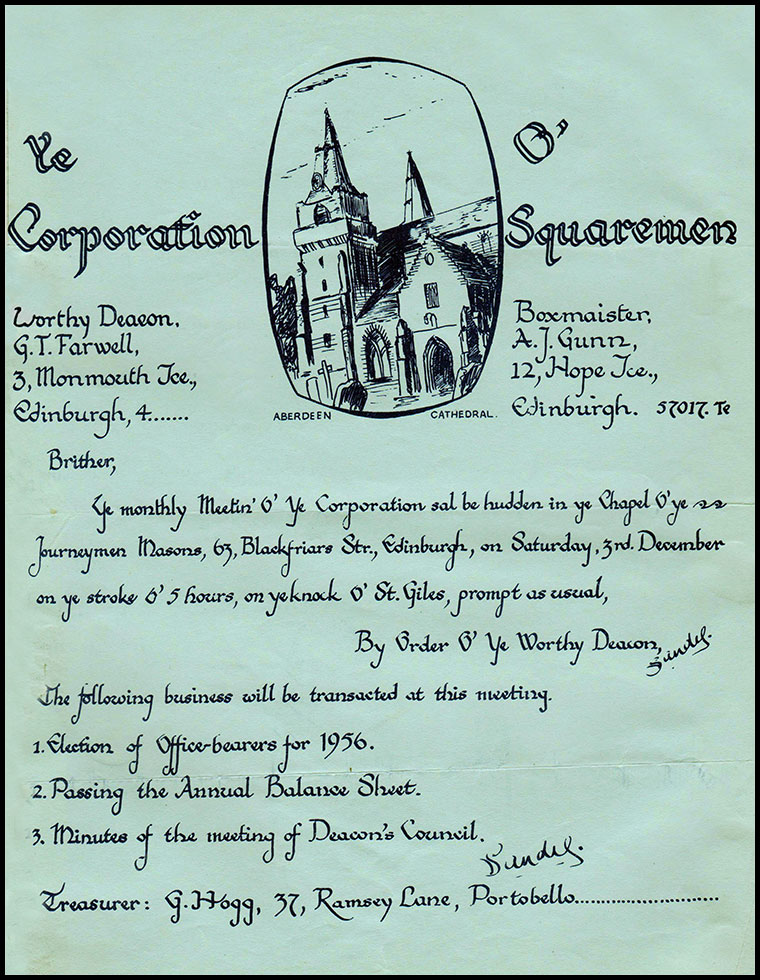 Ye
O'
Corporation
Squaremen
Worthy Deacon,
G.T. Farwell,
3, Monmouth Tce.,
Edinburgh, 4......
ABERDEEN CATHEDRAL.
Boxmaister,
A.J. Gunn,
12, Hope Tce.,
Edinburgh. 57017. Te
Brither,
Ye monthly Meetin' O' Ye Corporation sal be hudden in ye Chapel O' ye
Journeymen Masons, 63, Blackfriars Str., Edinburgh, on Saturday, 3rd. December
on ye stroke O' 5 hours, on ye knock O' St. Giles, prompt as usual,
By Order O' Ye Worthy Deacon,
The following business will be transacted at this meeting.
1. Election of Office-bearers for 1956.
2. Passing the Annual Balance Sheet.
3. Minutes of the meeting of Deacon's Council.
Treasurer: G. Hogg, 37, Ramsey Lane, Portobello........................